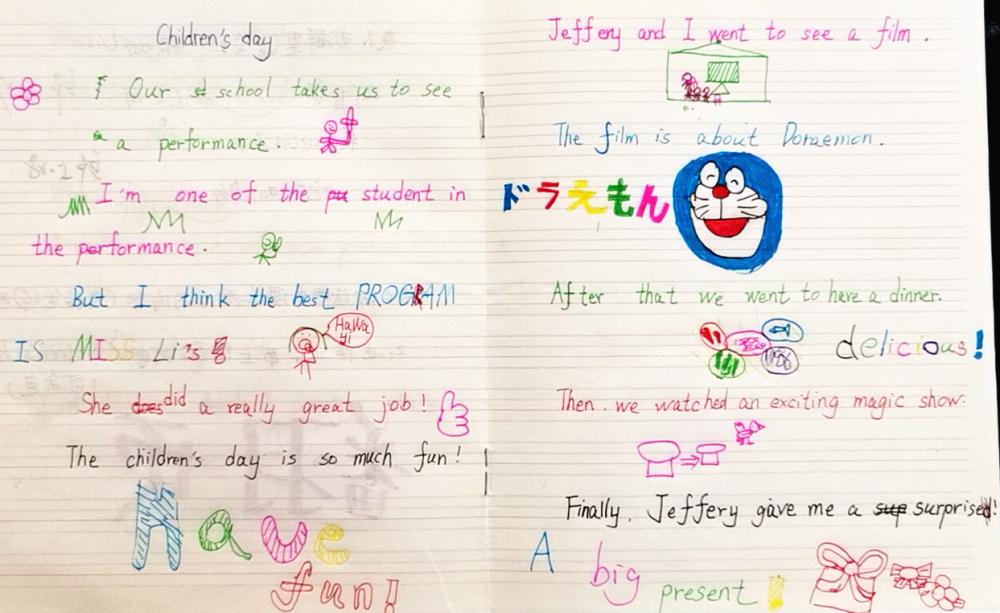 Children's day
Our school takes us to see
a performance.
I'm one of the student in
the performance.
But I think the best PROGRAM
IS MISS Li's
HaWa
yi
She did a really great job!
The children's day is so much fun!
Have
fun!
Jeffery and I went to see a film.
The film is about Doraemon.
ドラえもん
After that we went to have a dinner.
delicious!
Then. we watched an exciting magic show.
Finally, Jeffery gave me a surprised!
A big present!